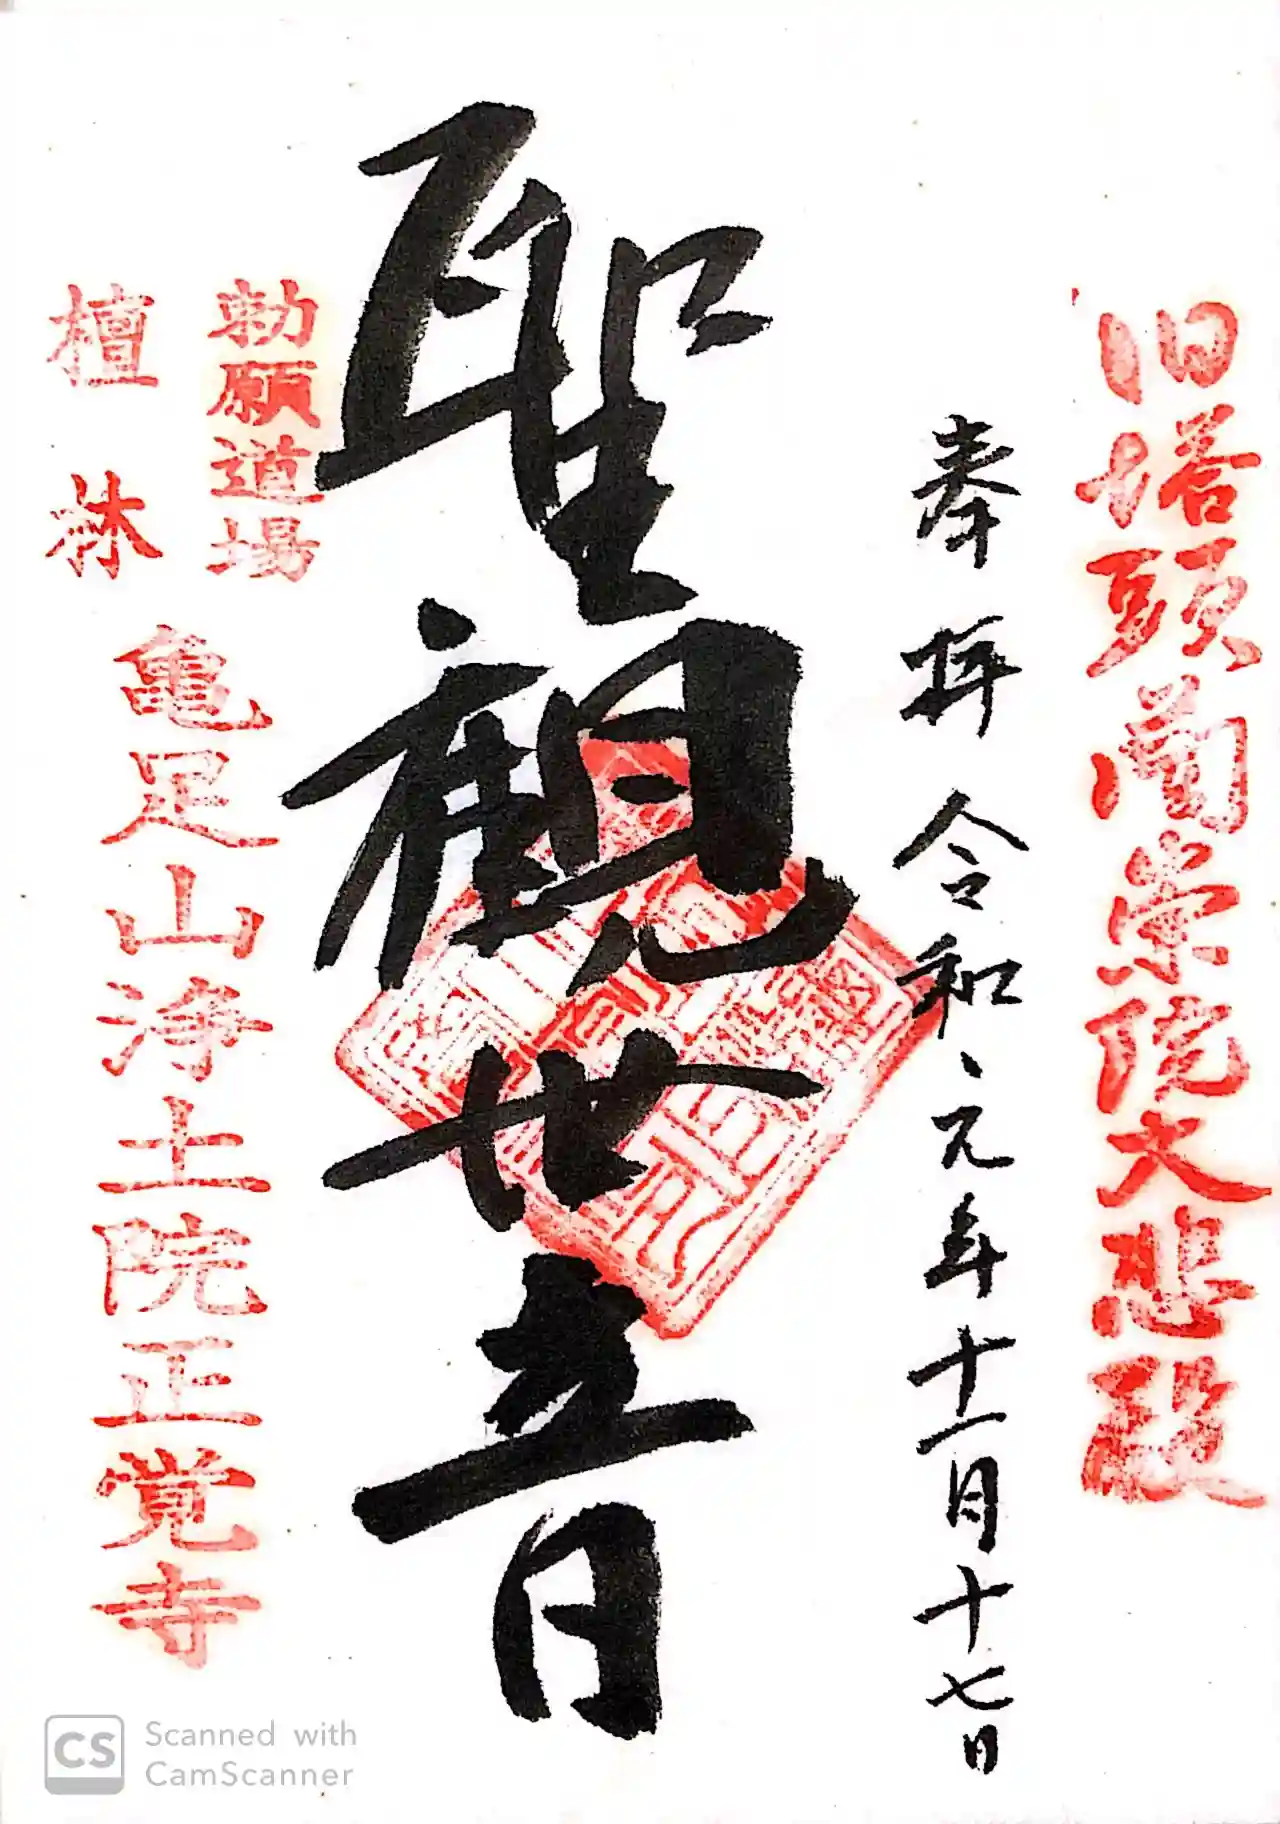 旧塔頭南崇院大悲殿
奉拝 令和元年十一月十七日
聖観世音
勅願道場
檀林
亀足山浄土院正覚寺
CS Scanned with
CamScanner